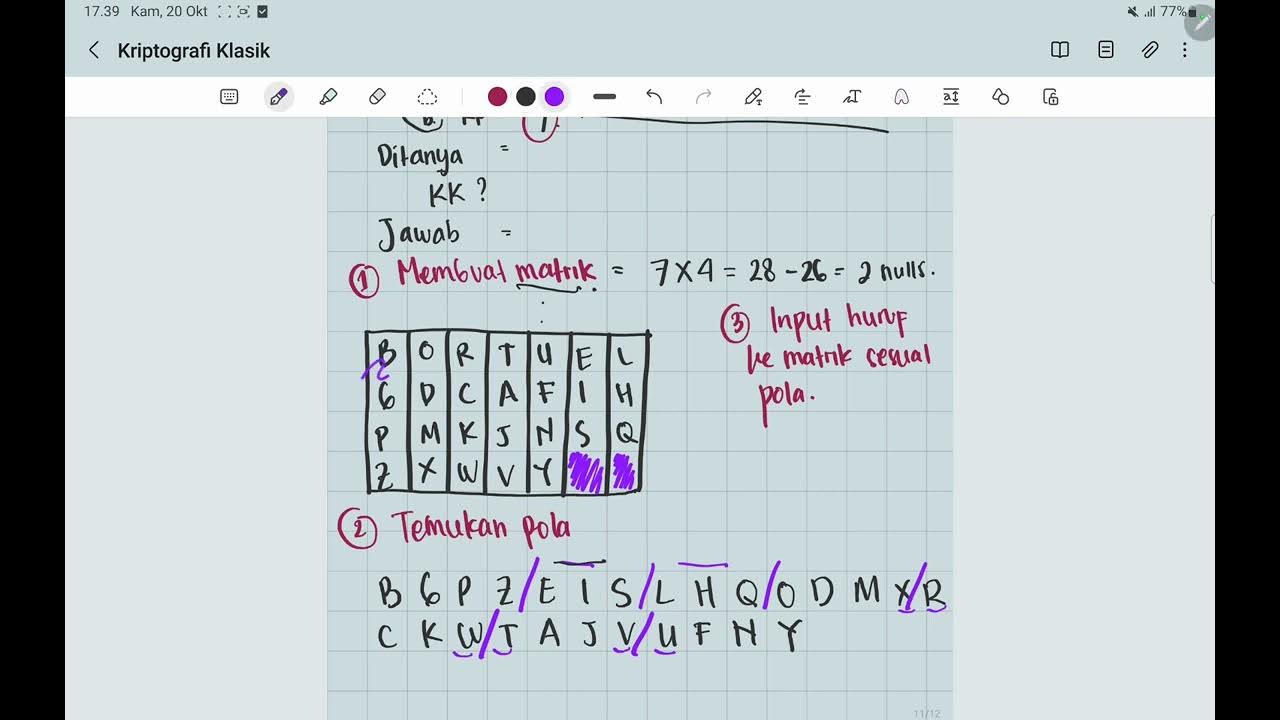 17.39 Kam, 20 Okt
77%
Kriptografi Klasik
Ditanya =
KK ?
Jawab =
① Membuat matrik = 7 X 4 = 28 - 26 = 2 nulls.
③ Input huruf
ke matrik sesuai
pola.
B O R T U E L
G D C A F I H
P M K J N S Q
Z X W V Y
② Temukan pola
B G P Z / E I S / L H Q / O D M X / R
C K W / T A J V / U F N Y
11/12